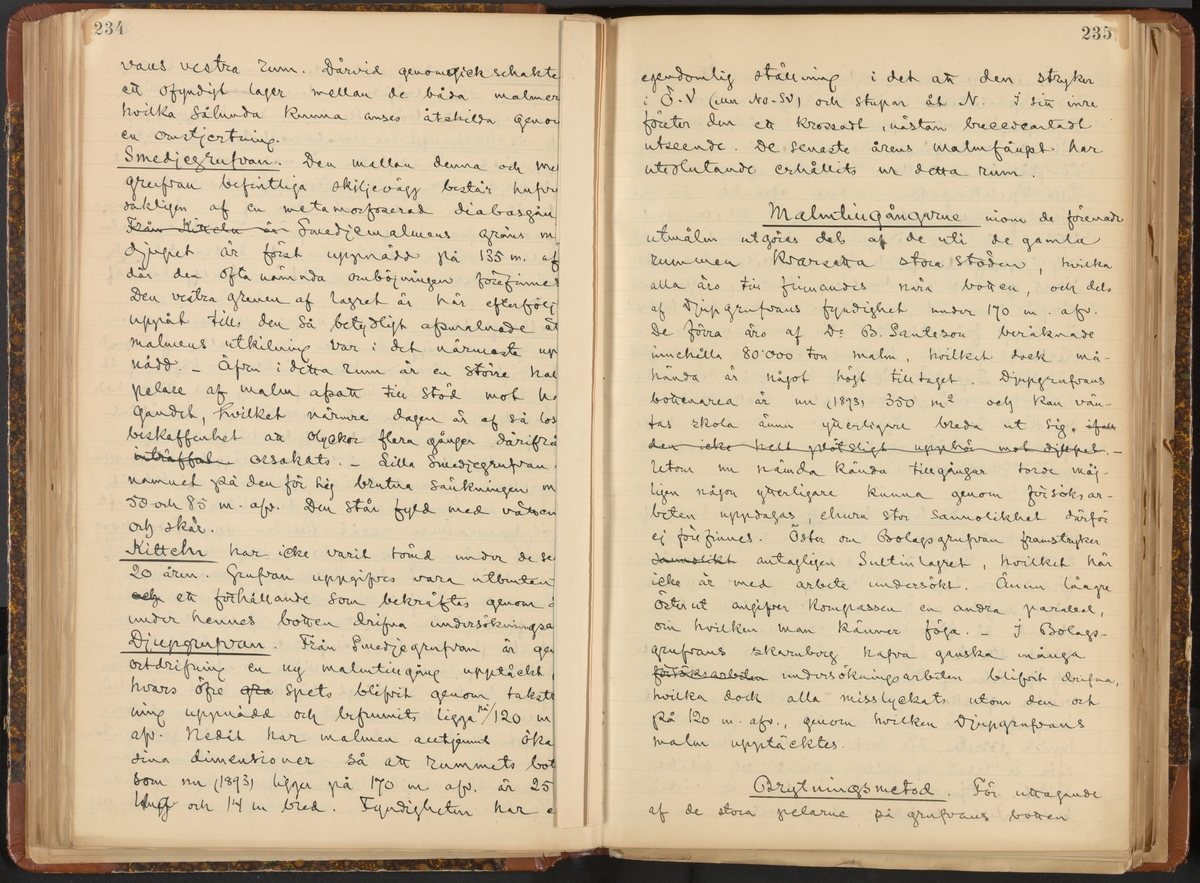 234
vans vestra rum. Därvid genomgick schakte
ett ofyndigt lager mellan de båda malmer
hvilka sålunda kunna anses åtskilda genom
en omstjertning.
Smedjegrufvan. Den mellan denna och
grufvan befintliga skiljevägg består hufvu
sakligen af en metamorfoserad diabasgån
Från Kitteln är Smedjemalmens gräns m
djupet är först uppnådd på 135 m. af
där den ofta nämnda ombøjningen förefinnes
Den vestra grenen af lagret är här efterfölj
uppåt tills den så betydligt afsmalnade at
malmens utkilning var i det närmaste up
nådd. – Äfven i detta rum är en större
pelare af malm afsatt till stöd mot
gandet, hvilket närmre dagen är af så lös
beskaffenhet att olyckor flera gånger därifrå
inträffat orsakats. – Lilla Smedjegrufvan
namnet på den för sig brutna sänkningen m
50 och 85 m. afv. Den står fyld med vatten
och skär.
Kitteln har icke varit tömd under de se
20 åren. Grufvan uppgifves vara utbruten
och ett förhållande som bekräftes genom
under hennes botten drifna undersökningsa
Djupgrufvan. Från Smedjegrufvan är gen
ortdrifning en ny malmtillgång upptäckt,
hvars öfre spets blifvit genom takstr
ning uppnådd och befunnits ligga på 120 m
afv. Nedåt har malmen allt jemnt öka
sina dimensioner så att rummets bot
som nu (1893) ligger på 170 m. afv. är 25
lång och 14 m bred. Fyndigheten har e
235
egendomlig ställning i det att den stryker
i Ö-V (llr NO-SV) och stupar åt N. I sitt inre
företer den ett krossadt, nästan breccieartadt
utseende. De senaste årens malmfångst har
uteslutande erhållits ur detta rum.
Malmtillgångarne inom de förenade
utmålen utgöras dels af de uti de gamla
rummen kvarsatta stora stöden, hvilka
alla äro till finnandes nära botten, och dels
af Djupgrufvans fyndighet under 170 m. afv.
De förra äro af Dr B. Santesson beräknade
innehålla 80'000 ton malm, hvilket dock må-
hända är något högt tilltaget. Djupgrufvans
bottenarea är nu (1893) 350 m² och kan vän-
tas skola ännu ytterligare breda ut sig, ifall
den icke helt plötsligt upphör mot djupet. –
Utom nu nämda kända tillgångar torde möj-
ligen någon ytterligare kunna genom försöksar-
beten uppdagas, ehuru stor sannolikhet därför
ej förefinnes. Öster om Bolagsgrufvan framstryker
sannolikt antagligen Sultinlagret, hvilket här
icke är med arbete undersökt. Ännu längre
österut angifver kompassen en andra parallel,
om hvilken man känner föga. – I Bolags-
grufvans skarnborg hafva ganska många
försöksarbeten undersökningsarbeten blifvit drifna,
hvilka dock alla misslyckats utom den ort
på 120 m. afv., genom hvilken Djupgrufvans
malm upptäcktes.
Brytningsmetod. För uttagande
af de stora pelarne på grufvans botten